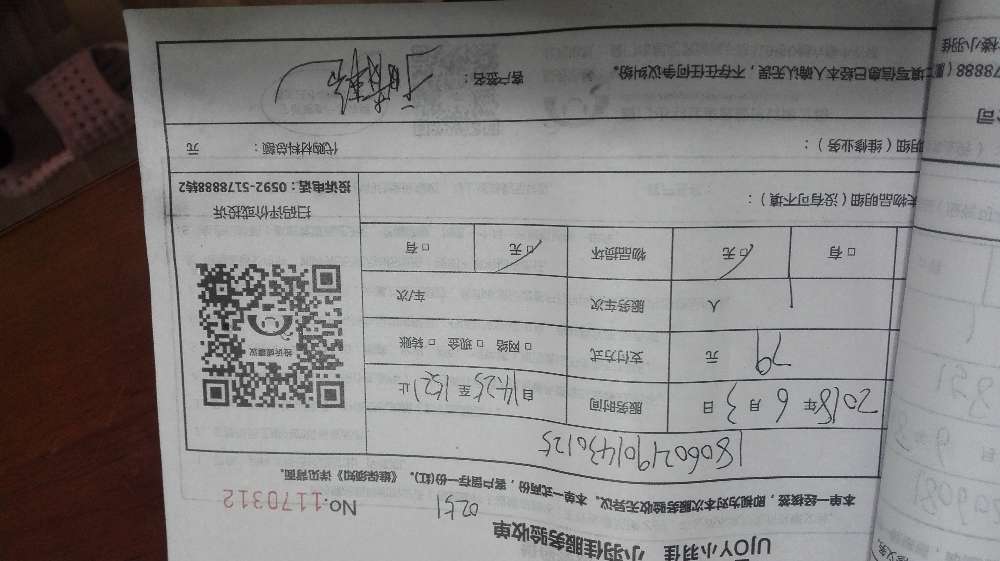 UJOY小羽佳 小羽佳服务验收单
0251 NO.1170312
本单一经接签，即视为对本次服务验收无异议。本单一式两份，客户留存一份(红)。《维保须知》详见背面。
180602190143012S
2018年 6月3日 服务时间 自1425至1521止
79元 支付方式 □网络 □现金 □转账
1人 服务车次 车/次
□有 □无 物品损坏 □无 □有
投诉建议
物品明细（没有可不填）：
扫码评价或投诉
投诉电话：0592-5178888转2
明细（维修业务）： 代购材料总额： 元
填写信息已经本人确认无误，不存在任何争议纠纷。 客户签名：